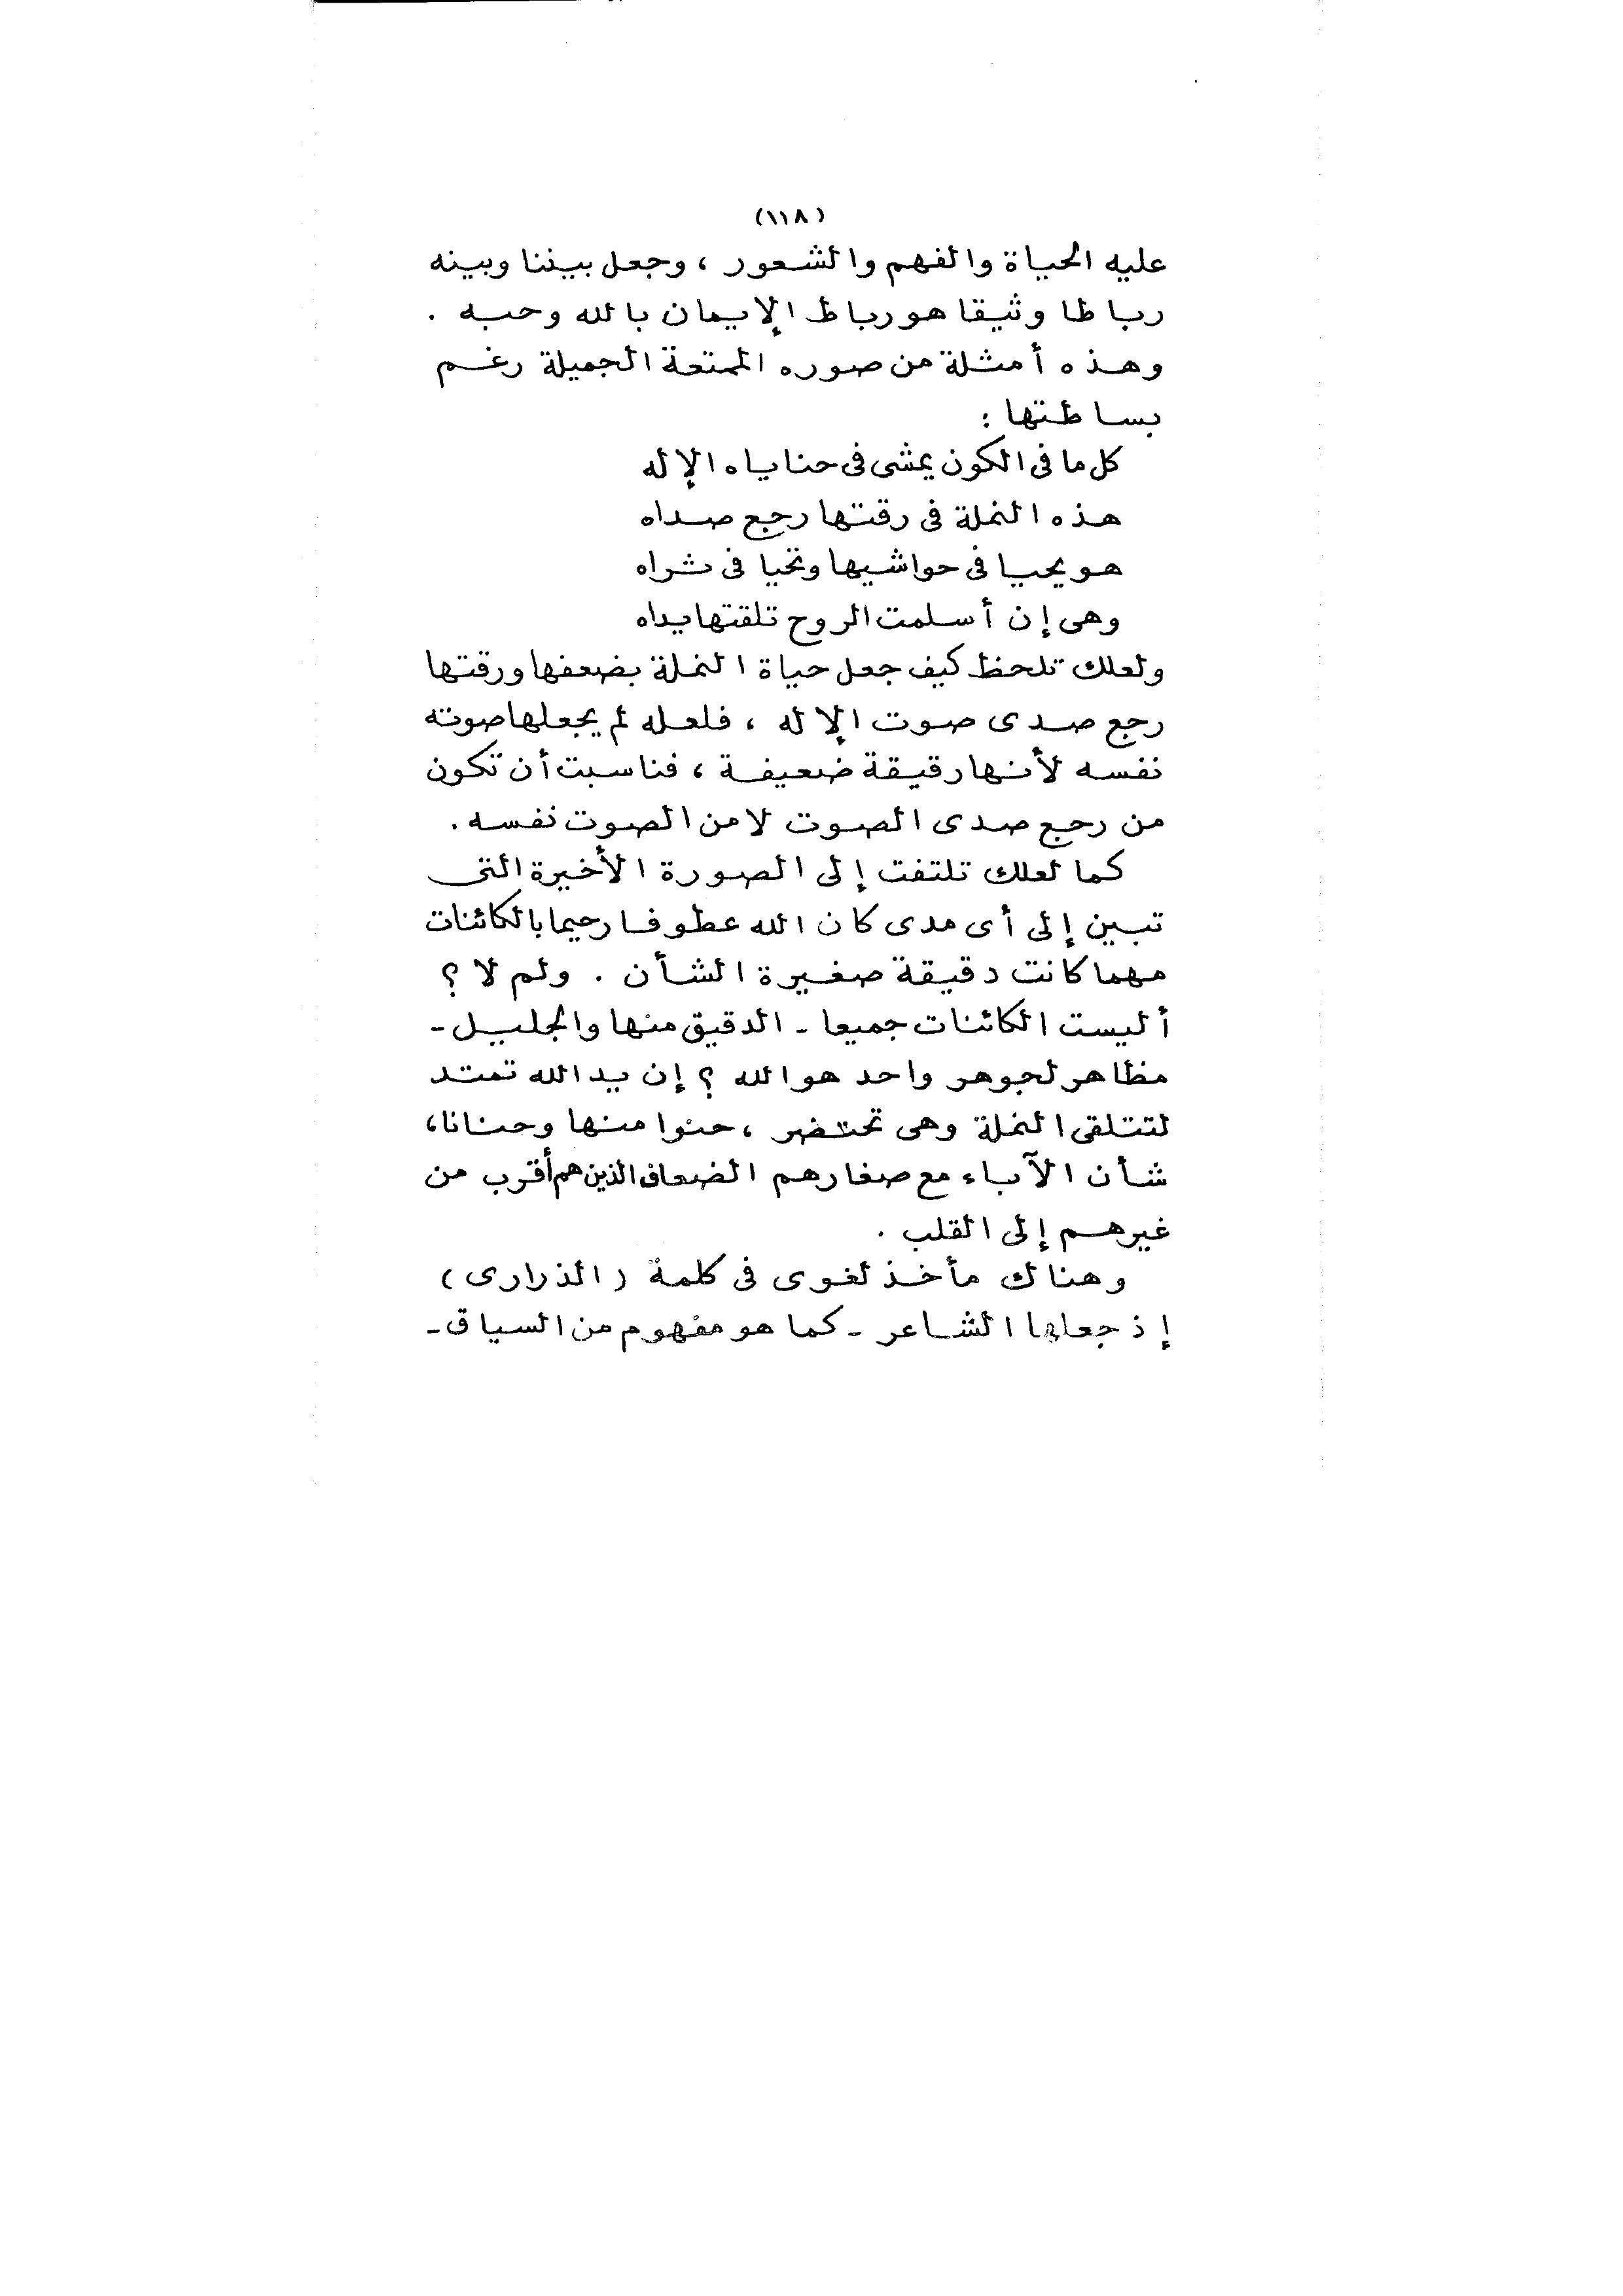 (١١٨)
عليه الحياة والفهم والشعور ، وجعل بيننا وبينه
رباطا وثيقا هو رباط الإيمان بالله وحبه .
وهذه أمثلة من صوره الممتعة الجميلة رغم
بساطتها :
كل ما فى الكون يمشى فى حناياه الإله
هذه النملة فى رقتها رجع صداه
هو يحيا فى حواشيها وتحيا فى ثراه
وهى إن أسلمت الروح تلقتها يداه
ولعلك تلحظ كيف جعل حياة النملة بضعفها ورقتها
رجع صدى صوت الإله ، فلعله لم يجعلها صوته
نفسه لأنها رقيقة ضعيفة ، فناسبت أن تكون
من رجع صدى الصوت لا من الصوت نفسه .
كما لعلك تلتفت إلى الصورة الأخيرة التى
تبين إلى أى مدى كان الله عطوفا رحيما بالكائنات
مهما كانت دقيقة صغيرة الشأن . ولم لا ؟
أليست الكائنات جميعا - الدقيق منها والجليل -
مظاهر لجوهر واحد هو الله ؟ إن يد الله تمتد
لتتلقى النملة وهى تحتضر ، حنوا منها وحنانا ،
شأن الآباء مع صغارهم الضعاف الذين هم أقرب من
غيرهم إلى القلب .
وهناك مأخذ لغوى فى كلمة ( الذرارى )
إذ جعلها الشاعر - كما هو مفهوم من السياق -